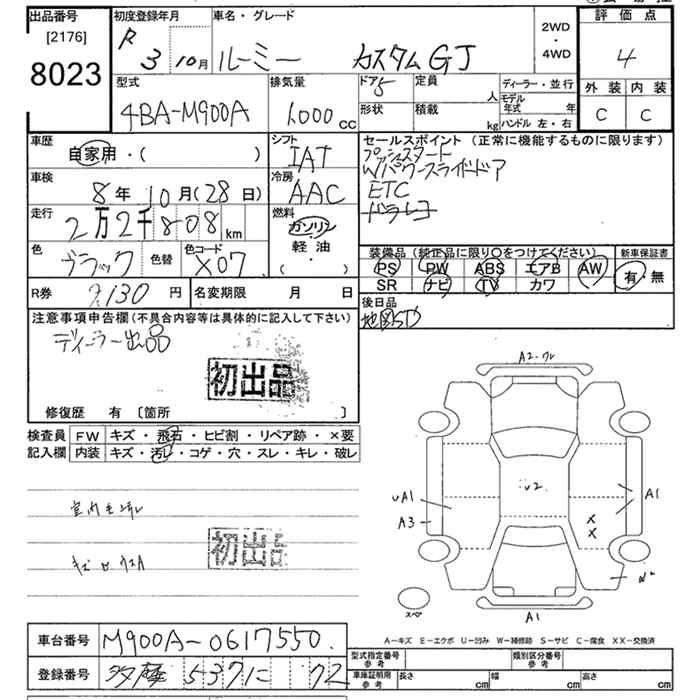 出品番号 初度登録年月 車名・グレード 評価点
[2176] R 3 10月 ルーミー カスタムGJ 2WD・4WD 4
8023 外装 内装
C C
型式 排気量 ドア 5 定員 人 ディーラー・並行
4BA-M900A 1,000cc 形状 積載 kg モデル年式 年
ハンドル 左・右
車歴 自家用・( )
シフト IAT
セールスポイント (正常に機能するものに限ります)
プッシュスタート
Wパワースライドドア
ETC
ドラレコ
車検 8年 10月(28日)
冷房 AAC
走行 2万2千808km
燃料 ガソリン 軽油・( )
色 ブラック 色替 色コード X07
装備品 (純正品に限り○をつけてください) 新車保証書
PS PW ABS エアB AW 有・無
SR ナビ TV カワ
R券 9,130円 名変期限 月 日
後日品
地図SD
注意事項申告欄(不具合内容等は具体的に記入して下さい)
ディーラー出品
初出品
修復歴 有 [箇所 ]
検査員記入欄 FW キズ・飛石・ヒビ割・リペア跡・×要
内装 キズ・汚レ・コゲ・穴・スレ・キレ・破レ
初出品
A2・ワレ
U2
UA1
A3
A1
×
×
A1
スペア
A-キズ E-エクボ U-凹み W-補修跡 S-サビ C-腐食 XX-交換済
車台番号 M900A-0617550
登録番号 537 72
型式指定番号 参考 類別区分番号 参考
車庫証明用 参考 長さ cm 幅 cm 高さ cm